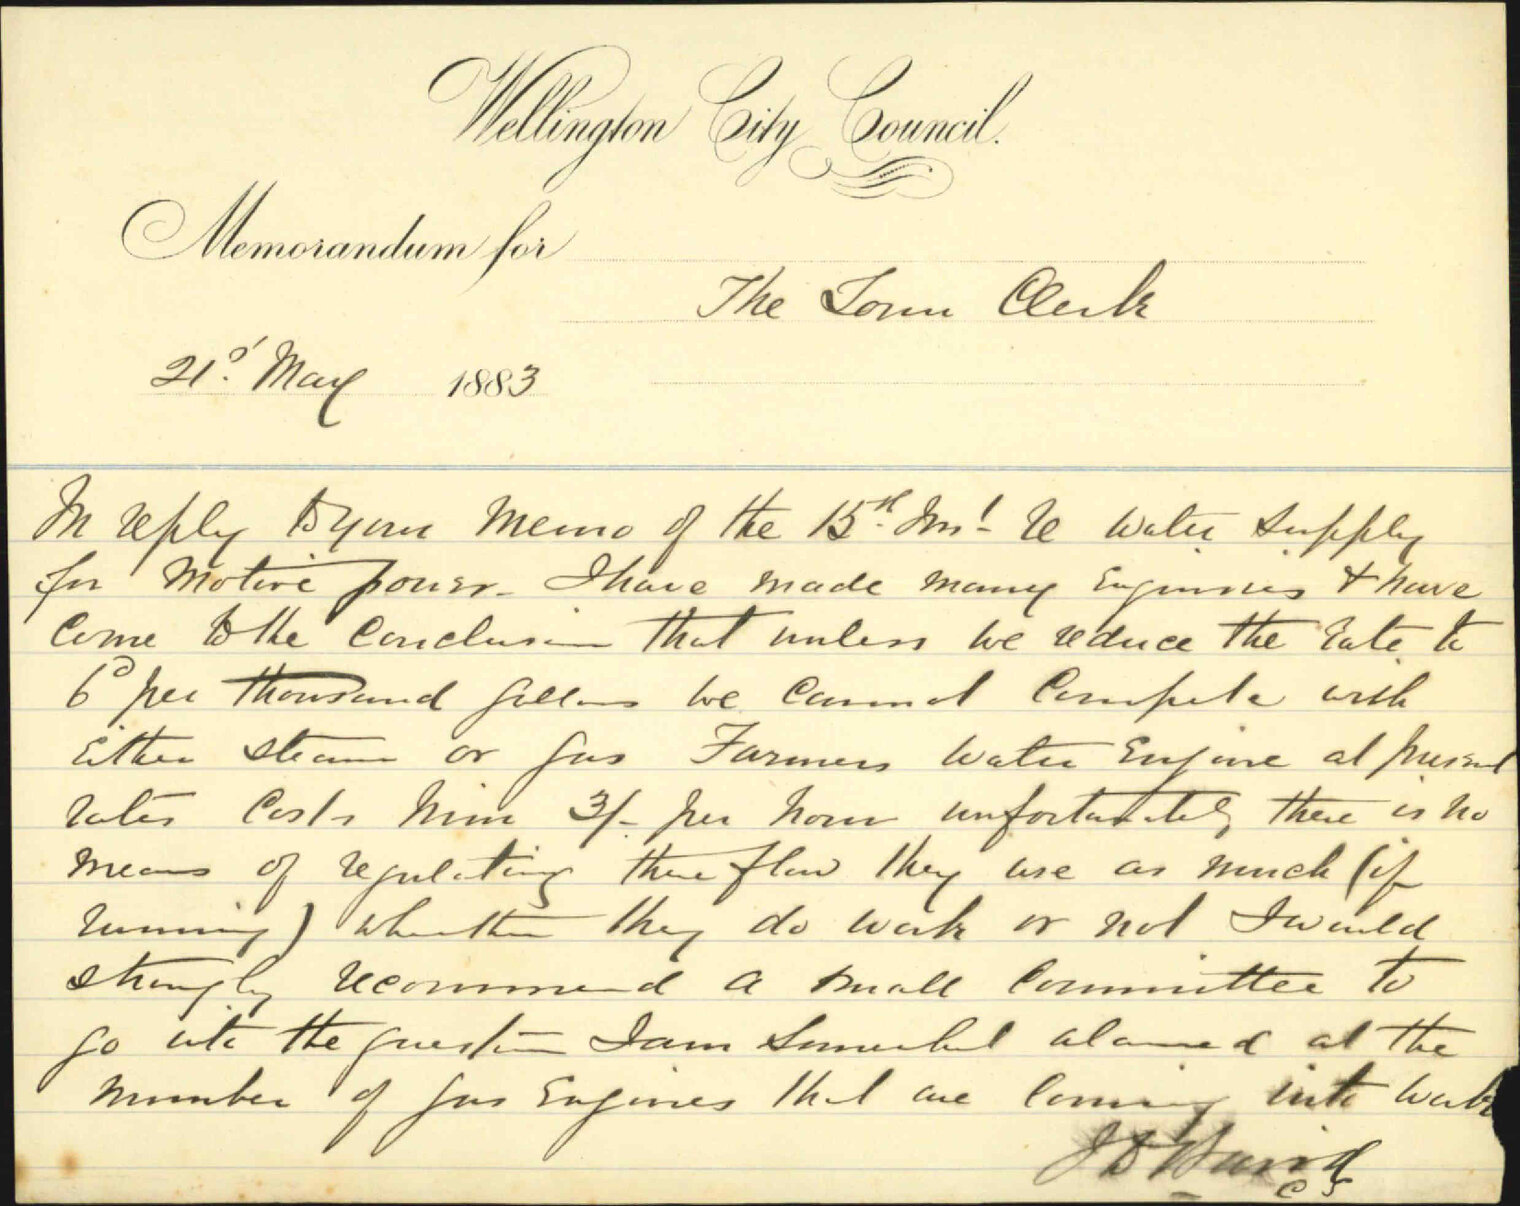 Wellington City Council.
Memorandum for
The Town Clerk
21st May 1883
In reply to your Memo of the 15th Inst re water supply
for Motive power - I have made many Enquiries & have
Come to the Conclusion that unless we reduce the rate to
6d per thousand gallons we cannot Compete with
Either steam or gas Farmers water Engine at present
rates Costs him 3/- per hour unfortunately there is no
means of regulating the flow they use as much (if
running) whether they do work or not I would
strongly recommend a small Committee to
go into the question I am Somewhat alarmed at the
number of gas Engines that are Coming into work
J D Baird
C S